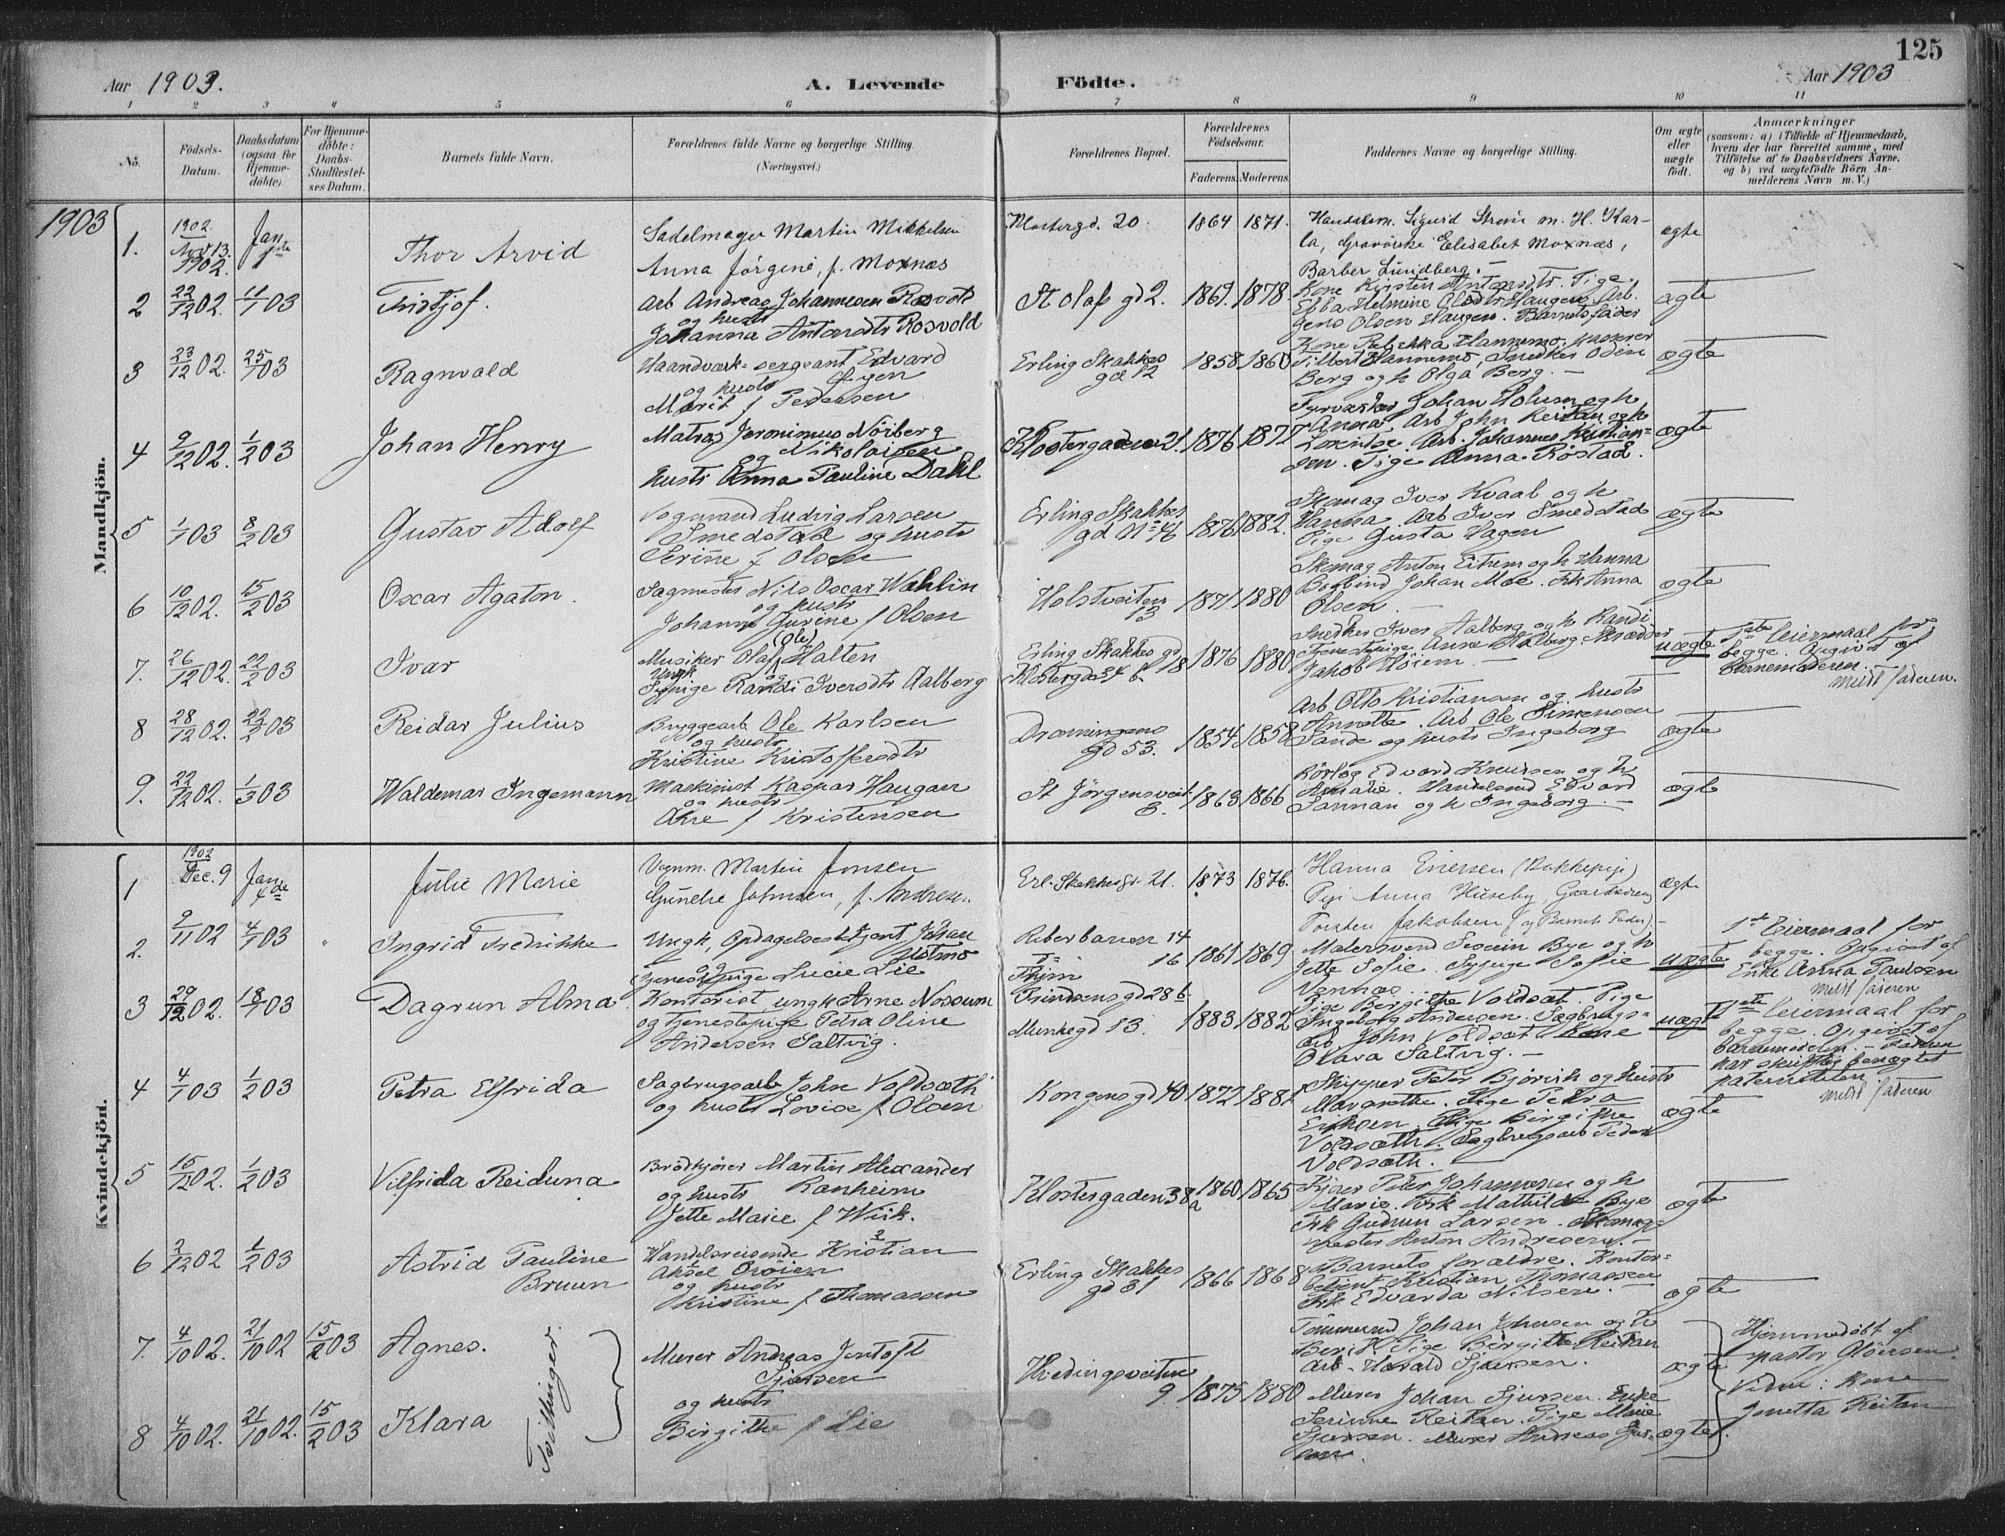 125
Aar 1903.
A. Levende Födte.
Aar 1903
1 2 3 4 5 6 7 8 9 10 11
No.
Födsels-Datum.
Daabsdatum (ogsaa for Hjemme-döbte).
For Hjemme-döbte: Daabs-Stadfæstel-ses Datum.
Barnets fulde Navn.
Forældrenes fulde Navne og borgerlige Stilling. (Næringsvei.)
Forældrenes Bopæl.
Forældrenes Födselsaar.
Faderens. Moderens.
Faddernes Navne og borgerlige Stilling.
Om ægte eller uægte födt.
Anmærkninger
(saasom: a) i Tilfælde af Hjemmedaab,
hvem der har forrettet samme, med
Tilföielse af to Daabsvidners Navne,
og b) ved uægtefödte Börn An-
melderens Navn m. V.)
1903
Mandkjön.
1. 1902 Nov 13. 1902. Jan 1ste
Thor Arvid
Sadelmager Martin Mikkelsen
Anna Jörgine, f. Moxnæs
Klostergd. 20. 1864 1871.
Handelsm. Sigurd m. H. Kar-
la, Elisabet Moxnæs,
Barber Lundberg. —
ægte
2 22/12 02. 11/1 03
Fridtjof.
Arb Andreas Johannesen Rosvold
og hustr
Johanna Antonsdtr Rosvold
St Olafs gd 2. 1869. 1878.
Kone Kirsten Antonsdtr. Pige
Ebba Helmine Olsdtr Haugen. Arb.
Jens Olsen Haugen. Barnets fader
ægte
3 23/12 02. 25/1 03
Ragnvald
Haandværk-sergeant Edvard
og hustr Lyen
Marit f Pedersen
Erling Skakkes gd 12 1858 1860
Kone Rebekka Hannemo, kasserer
Hannemo, Snedker Oden
Berg og h Olga Berg. —
ægte
4 9/12 02. 1/2 03
Johan Henry
Matros Jeronimus Nörberg
og Nikolaisen
hustr Anna Pauline Dahl
Klostergaden 21. 1876 1877
Fyrvæsker Johan Holum og h
Anna. Arb John Reitan og h
Lorentse. Arb. Johannes Kristian-
sen. Pige Anna Röstad.
ægte
5 1/1 03 8/2 03
Gustav Adolf
Vognmand Ludvig Larsen
Smedstad og hustr
Serine f Olsen
Erling Skakkes gd No 46 1876 1882.
Skomag Iver Kvaal og h
Hanna. Arb Iver Smedstad
Pige Gusta Hagen
ægte
6 10/12 02. 15/2 03
Oscar Agaton.
Sagmester Nils Oscar Wahlin
og hustr
Johanne Gurine f Olsen
Holstveiten 13 1871 1880
Skomag Anton Eithem og h Hanna
Bogbind Johan Moe. Frk Anna
Olsen. —
ægte
7. 26/12 02. 22/2 03
Ivar
Musiker Olaf (Ole) Halten
Ungk og
Sypige Randi Iversdtr Aalberg
Erling Skakkes gd
Klostergd 54 b 18 1876 1880
Snedker Iver Aalberg og h Randi
Anne Aalberg. Skrædder
Jakob Höiem. —
uægte
1ste Leiermaal for
begge. Opgivet af
barnemoderen. —
meldt faderen.
8 28/12 02. 22/2 03
Reidar Julius
Bryggearb Ole Karlsen
og hustr
Kristine Kristoffersdtr
Dronningens gd 53. 1854 1858
Arb Otto Kristiansen og hustr
Annette. Arb Ole Simensen
Sande og hustr Ingeborg
ægte
9. 22/12 02. 1/3 03
Waldemar Ingemann
Maskinist Kaspar Haugan
og hustr
Ane f Kristensen
St Jörgensveit 3. 1863 1866
Rörlæg Edvard Knudsen og h
Amalie. Handelsmd Edvard
Sannan og h Ingeborg. —
ægte
Kvindekjön.
1 1902 Dec. 9 Jan 4de
Julie Marie
Vognm. Martin Jonsen
Gunelie Johnsen, f. Andresen
Erl. Skakkesgd. 21. 1873 1876.
Hanna Enersen (Kokkepige)
Pige Anna Huseby Gaardsdreng
Torsten Jakobsen (og Barnets Fader). —
ægte
2. 9/11 02 4/1 03
Ingrid Fredrikke
Ungk, Opdagelsesbetjent Johan
og Holmo
Tjenestepige Lucie Lie
Reberbanen 14
16 1861 1869
Malersvend Svein Bye og h
Jette Sofie. Sypige Sofie
Vennæs.
uægte
1ste Leiermaal for
begge. Opgivet af
Enke Anna Paulsen
meldt faderen
3 29/12 02. 18/1 03
Dagrun Alma
Kontorist ungk Arne Nossum
og Tjenestepige Petra Oline
Andersen Saltvig.
Prindsens gd 28 b
Munkegd 13. 1883 1882
Pige Bergithe Voldsæt. Pige
Ingeborg Andersen. Sagbrugs-
arb John Voldsæt. Kone
Klara Saltvig. —
uægte
1ste Leiermaal for
begge. Opgivet af
barnemoderen. — Faderen
har skriftlig benægtet
paterniteten.
meldt faderen
4 4/1 03 1/2 03
Petra Elfrida
Sagbrugsarb John Voldsæth
og hustr Lovise f Olsen
Kongens gd 40 1872 1881
Skipper Peter Björvik og hustr
Margrethe. Pige Petra
Eriksen. Pige Birgithe
Voldsæth. Sagbrugsarb Peder
Voldsæth. —
ægte
5 15/12 02. 1/2 03
Vilfrida Reiduna
Brödkjörer Martin Alexander
og hustr Ranheim
Jette Marie f Wiik.
Klostergaden 38 a 1860 1865
Kjöer Peter Johannesen og h
Marie. Frk Mathilde Bye
Frk Gudrun Larsen. Skomag-
mester Anton Andresen. —
ægte
6 2/12 02 1/2 03
Astrid Pauline Bruun
Handelsreisende Kristian
Aksel Oröien
og hustr
Kristine f Thomassen
Erling Skakkes gd 31 1866 1868
Barnets forældre. Kontor-
betjent Kristian Thomassen
Frk Edvarda Nilsen. —
ægte
7. 4/10 02. 21/10 02 15/2 03
Agnes.
Tvillinger.
Murer Andreas Jentoft
Sjursen
og hustr
Birgithe f Lie
Hvedingsveiten 9. 1875 1880
Tömmermd Johan Johnsen og h
Berit. Pige Bergitte Reitan
Arb. Harald Sjursen.
ægte
Hjemmedöbt af
pastor Glöersen.
Vidne: Kone
Jonetta Reitan
8 4/10 02. 21/10 02. 15/2 03
Klara
Murer Johan Sjursen. Enke
Serinne Reitan. Pige Marie
Sjursen. Murer Andreas Sjur-
sen.
ægte